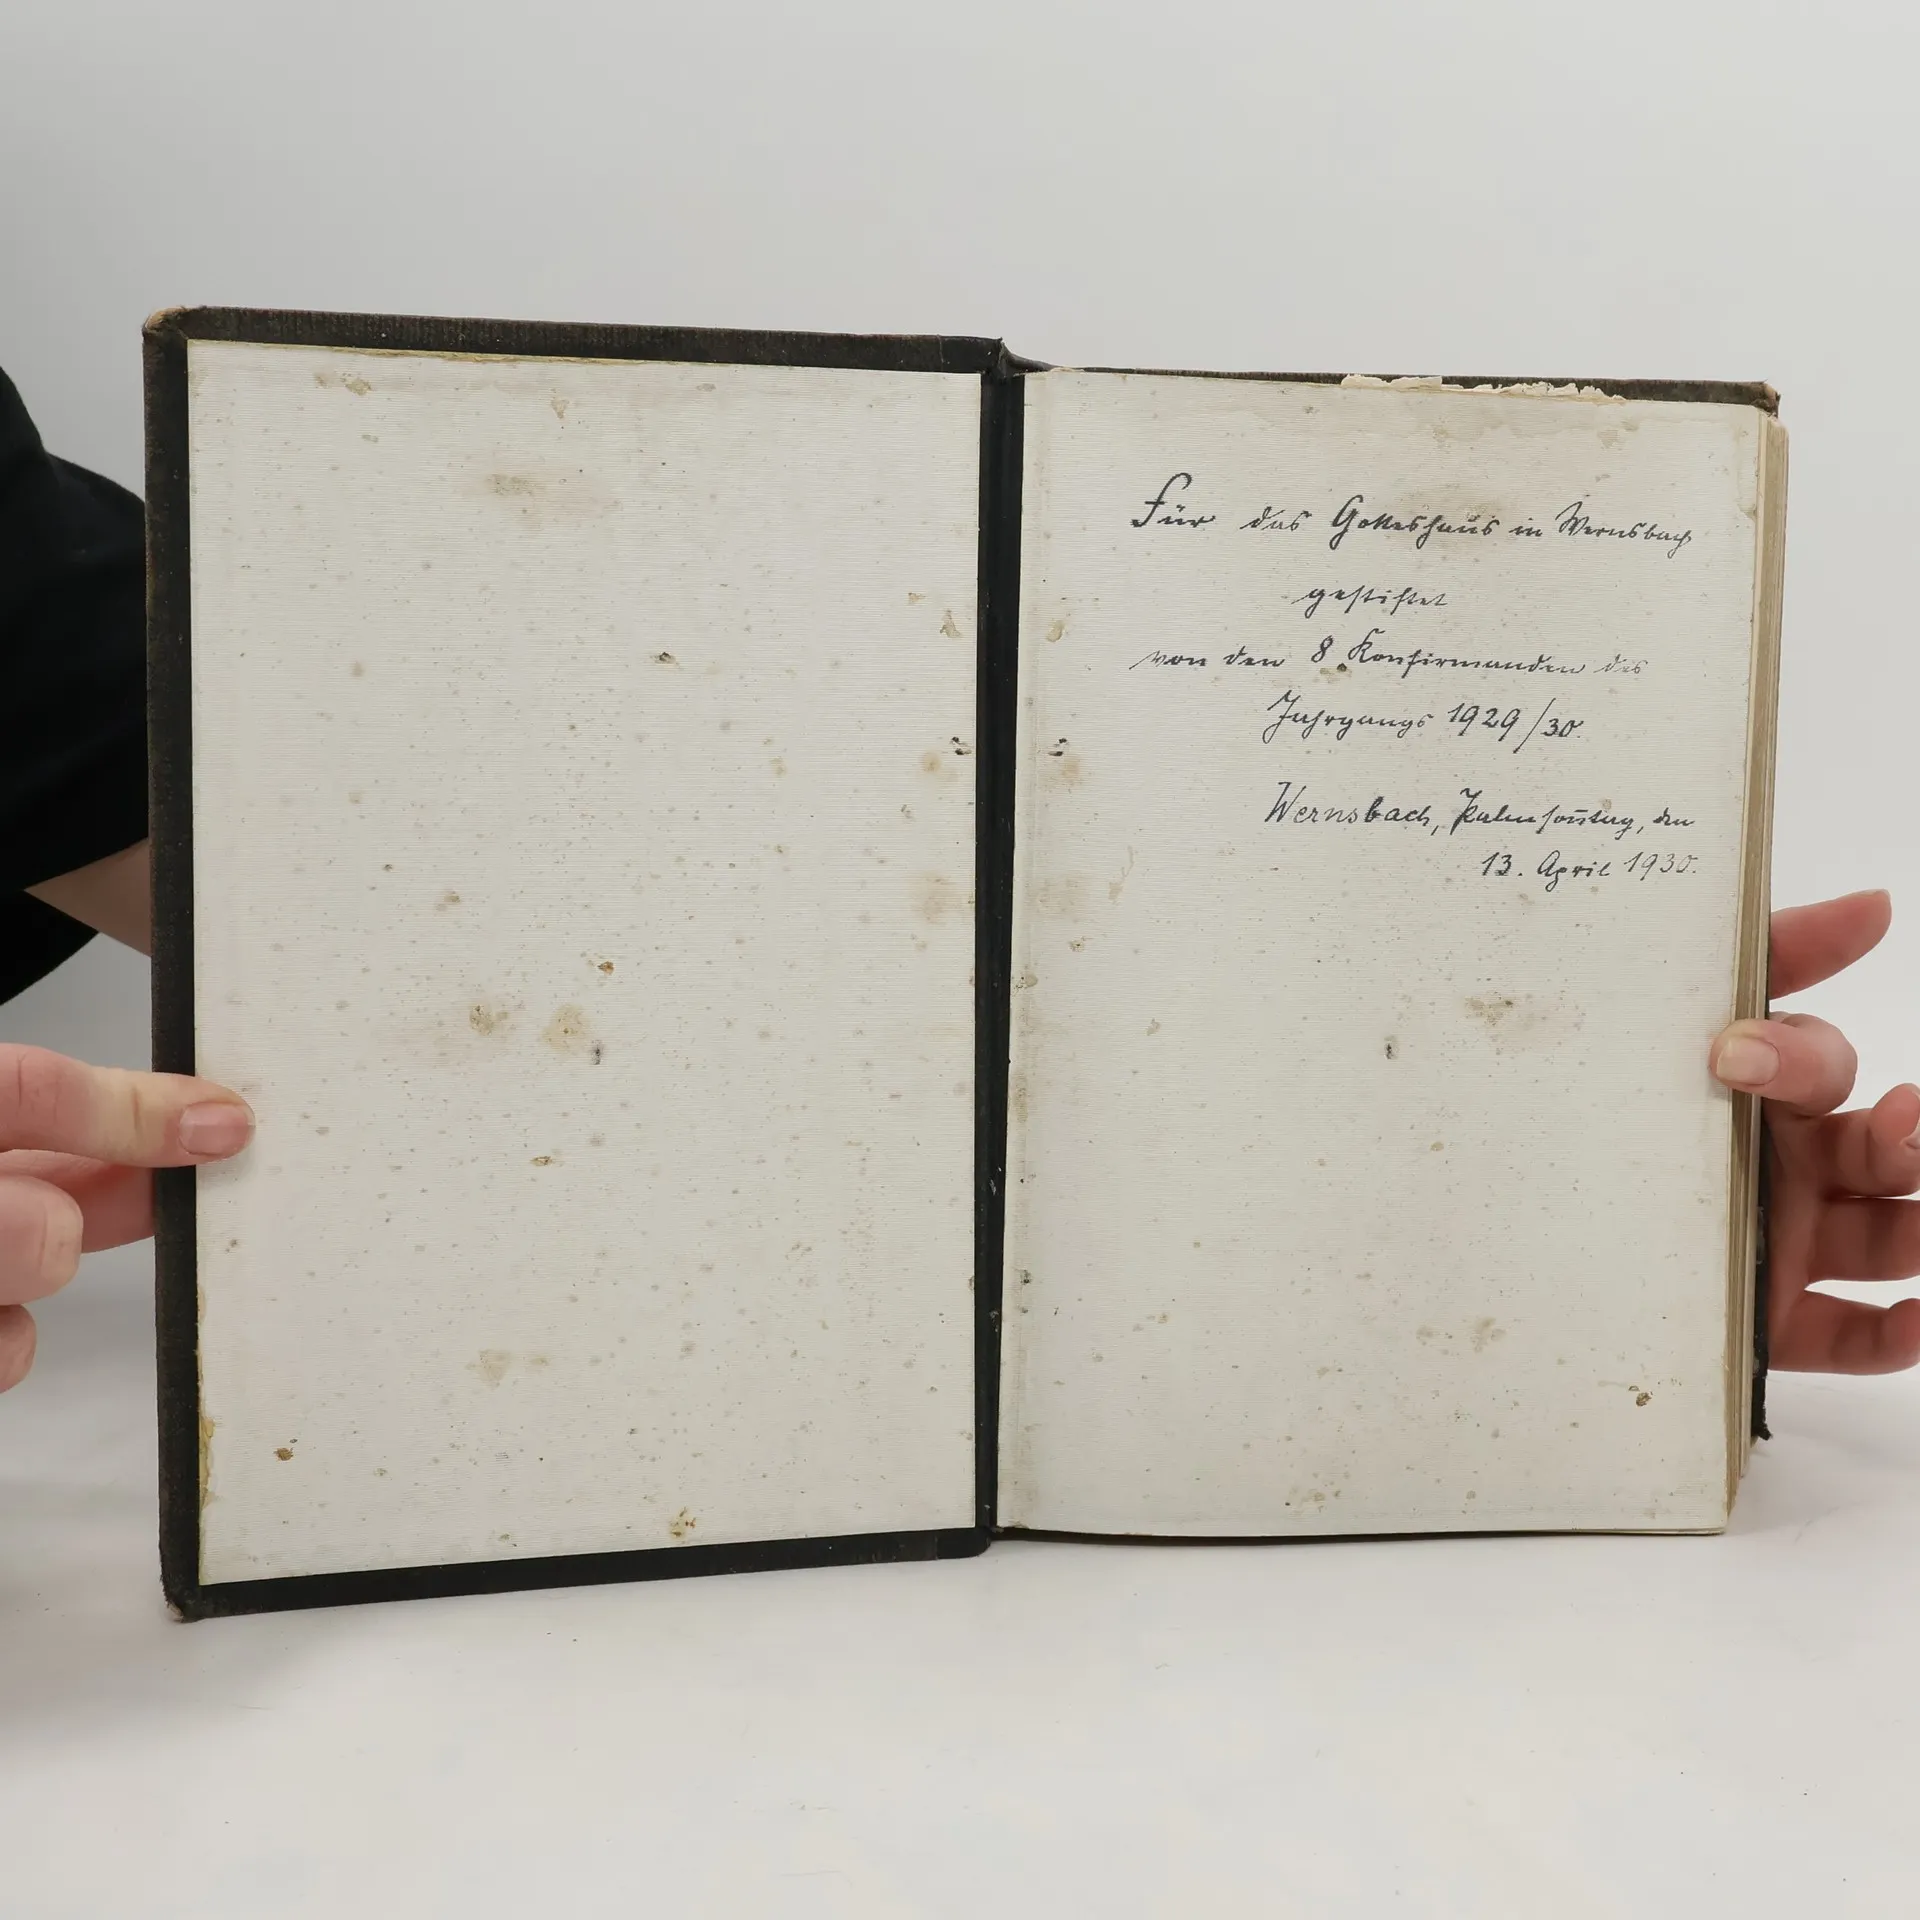 Für das Gotteshaus in Wernsbach
gestiftet
von den 8 Konfirmanden des
Jahrgangs 1929/30.
Wernsbach, Palmson̄tag, den
13. April 1930.